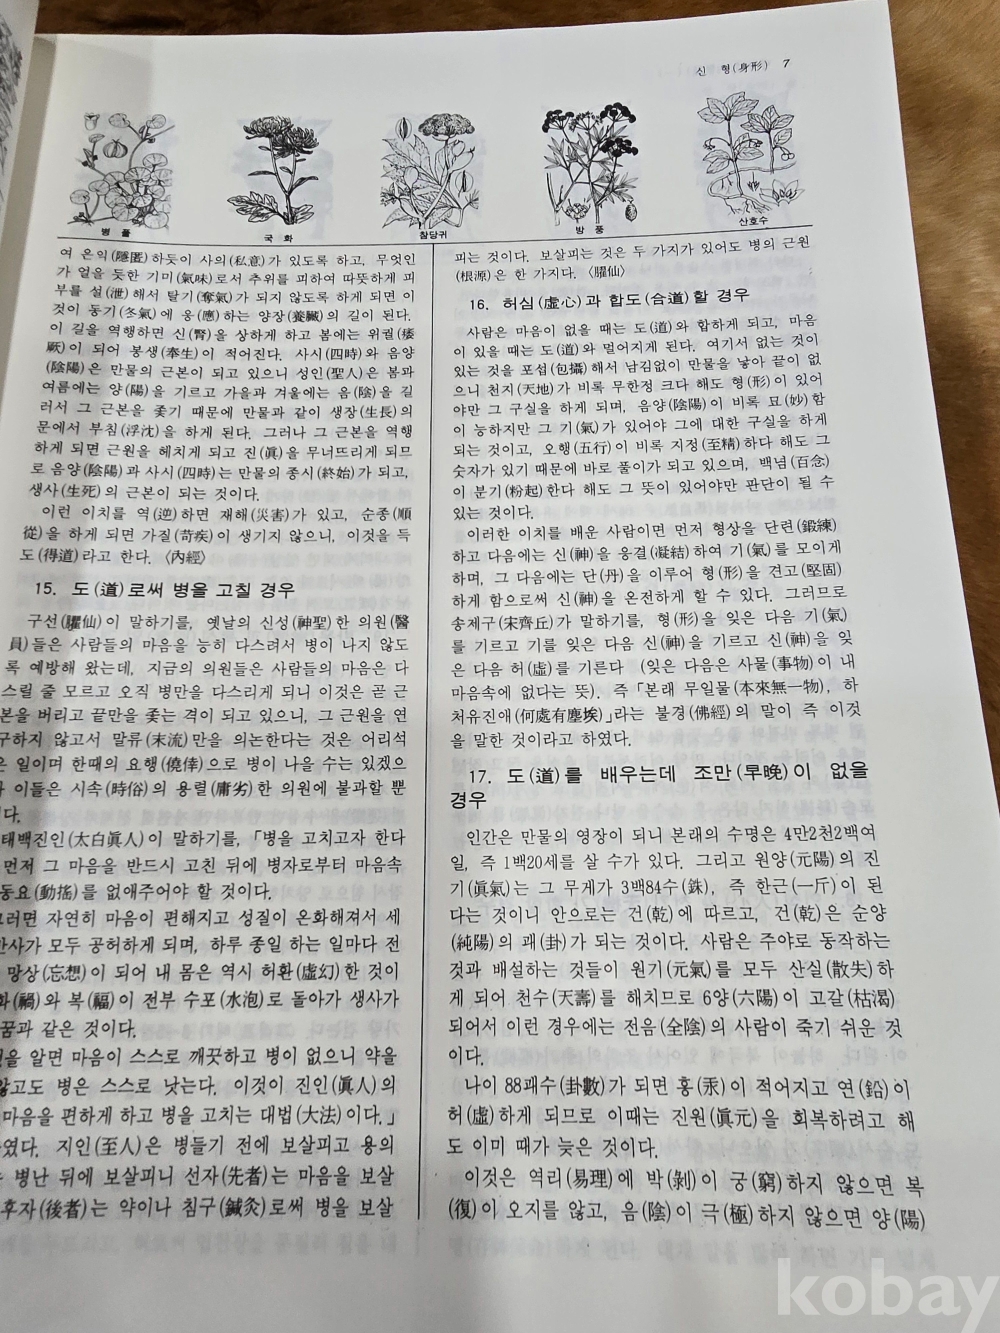 신 형(身形) 7
병 풀
국 화
참당귀
방 풍
산호수
여 은익(隱匿)하듯이 사의(私意)가 있도록 하고, 무엇인
가 얻을 듯한 기미(氣味)로서 추위를 피하여 따뜻하게 피
부를 설(泄)해서 탈기(奪氣)가 되지 않도록 하게 되면 이
것이 동기(冬氣)에 응(應)하는 양장(養臟)의 길이 된다.
이 길을 역행하면 신(腎)을 상하게 하고 봄에는 위궐(痿
厥)이 되어 봉생(奉生)이 적어진다. 사시(四時)와 음양
(陰陽)은 만물의 근본이 되고 있으니 성인(聖人)은 봄과
여름에는 양(陽)을 기르고 가을과 겨울에는 음(陰)을 길
러서 그 근본을 좇기 때문에 만물과 같이 생장(生長)의
문에서 부침(浮沈)을 하게 된다. 그러나 그 근본을 역행
하게 되면 근원을 헤치게 되고 진(眞)을 무너뜨리게 되므
로 음양(陰陽)과 사시(四時)는 만물의 종시(終始)가 되고,
생사(生死)의 근본이 되는 것이다.
이런 이치를 역(逆)하면 재해(災害)가 있고, 순종(順
從)을 하게 되면 가질(苛疾)이 생기지 않으니, 이것을 득
도(得道)라고 한다. 〈內經〉
15. 도(道)로써 병을 고칠 경우
구선(臞仙)이 말하기를, 옛날의 신성(神聖)한 의원(醫
員)들은 사람들의 마음을 능히 다스려서 병이 나지 않도
록 예방해 왔는데, 지금의 의원들은 사람들의 마음은 다
스릴 줄 모르고 오직 병만을 다스리게 되니 이것은 곧 근
본을 버리고 끝만을 좇는 격이 되고 있으니, 그 근원을 연
구하지 않고서 말류(末流)만을 의논한다는 것은 어리석
은 일이며 한때의 요행(僥倖)으로 병이 나을 수는 있겠으
이들은 시속(時俗)의 용렬(庸劣)한 의원에 불과할 뿐
다.
태백진인(太白眞人)이 말하기를, 「병을 고치고자 한다
먼저 그 마음을 반드시 고친 뒤에 병자로부터 마음속
동요(動搖)를 없애주어야 할 것이다.
그러면 자연히 마음이 편해지고 성질이 온화해져서 세
만사가 모두 공허하게 되며, 하루 종일 하는 일마다 전
망상(忘想)이 되어 내 몸은 역시 허환(虛幻)한 것이
화(禍)와 복(福)이 전부 수포(水泡)로 돌아가 생사가
꿈과 같은 것이다.
을 알면 마음이 스스로 깨끗하고 병이 없으니 약을
않고도 병은 스스로 낫는다. 이것이 진인(眞人)의
마음을 편하게 하고 병을 고치는 대법(大法)이다.」
였다. 지인(至人)은 병들기 전에 보살피고 용의
는 병난 뒤에 보살피니 선자(先者)는 마음을 보살
후자(後者)는 약이나 침구(鍼灸)로써 병을 보살
피는 것이다. 보살피는 것은 두 가지가 있어도 병의 근원
(根源)은 한 가지다. 〈臞仙〉
16. 허심(虛心)과 합도(合道)할 경우
사람은 마음이 없을 때는 도(道)와 합하게 되고, 마음
이 있을 때는 도(道)와 멀어지게 된다. 여기서 없는 것이
있는 것을 포섭(包攝)해서 남김없이 만물을 낳아 끝이 없
으니 천지(天地)가 비록 무한정 크다 해도 형(形)이 있어
야만 그 구실을 하게 되며, 음양(陰陽)이 비록 묘(妙)함
이 능하지만 그 기(氣)가 있어야 그에 대한 구실을 하게
되는 것이고, 오행(五行)이 비록 지정(至精)하다 해도 그
숫자가 있기 때문에 바로 풀이가 되고 있으며, 백념(百念)
이 분기(粉起)한다 해도 그 뜻이 있어야만 판단이 될 수
있는 것이다.
이러한 이치를 배운 사람이면 먼저 형상을 단련(鍛練)
하고 다음에는 신(神)을 응결(凝結)하여 기(氣)를 모이게
하며, 그 다음에는 단(丹)을 이루어 형(形)을 견고(堅固)
하게 함으로써 신(神)을 온전하게 할 수 있다. 그러므로
송제구(宋齊丘)가 말하기를, 형(形)을 잊은 다음 기(氣)
를 기르고 기를 잊은 다음 신(神)을 기르고 신(神)을 잊
은 다음 허(虛)를 기른다 (잊은 다음은 사물(事物)이 내
마음속에 없다는 뜻). 즉 「본래 무일물(本來無一物), 하
처유진애(何處有塵埃)」라는 불경(佛經)의 말이 즉 이것
을 말한 것이라고 하였다.
17. 도(道)를 배우는데 조만(早晩)이 없을
경우
인간은 만물의 영장이 되니 본래의 수명은 4만2천2백여
일, 즉 1백20세를 살 수가 있다. 그리고 원양(元陽)의 진
기(眞氣)는 그 무게가 3백84수(銖), 즉 한근(一斤)이 된
다는 것이니 안으로는 건(乾)에 따르고, 건(乾)은 순양
(純陽)의 괘(卦)가 되는 것이다. 사람은 주야로 동작하는
것과 배설하는 것들이 원기(元氣)를 모두 산실(散失)하
게 되어 천수(天壽)를 해치므로 6양(六陽)이 고갈(枯渴)
되어서 이런 경우에는 전음(全陰)의 사람이 죽기 쉬운 것
이다.
나이 88괘수(卦數)가 되면 홍(汞)이 적어지고 연(鉛)이
허(虛)하게 되므로 이때는 진원(眞元)을 회복하려고 해
도 이미 때가 늦은 것이다.
이것은 역리(易理)에 박(剝)이 궁(窮)하지 않으면 복
(復)이 오지를 않고, 음(陰)이 극(極)하지 않으면 양(陽)
kobay